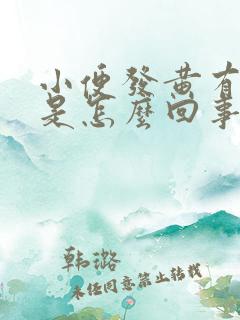 小便發黃有
是怎麼回事
韩潞
未任同意禁止转载